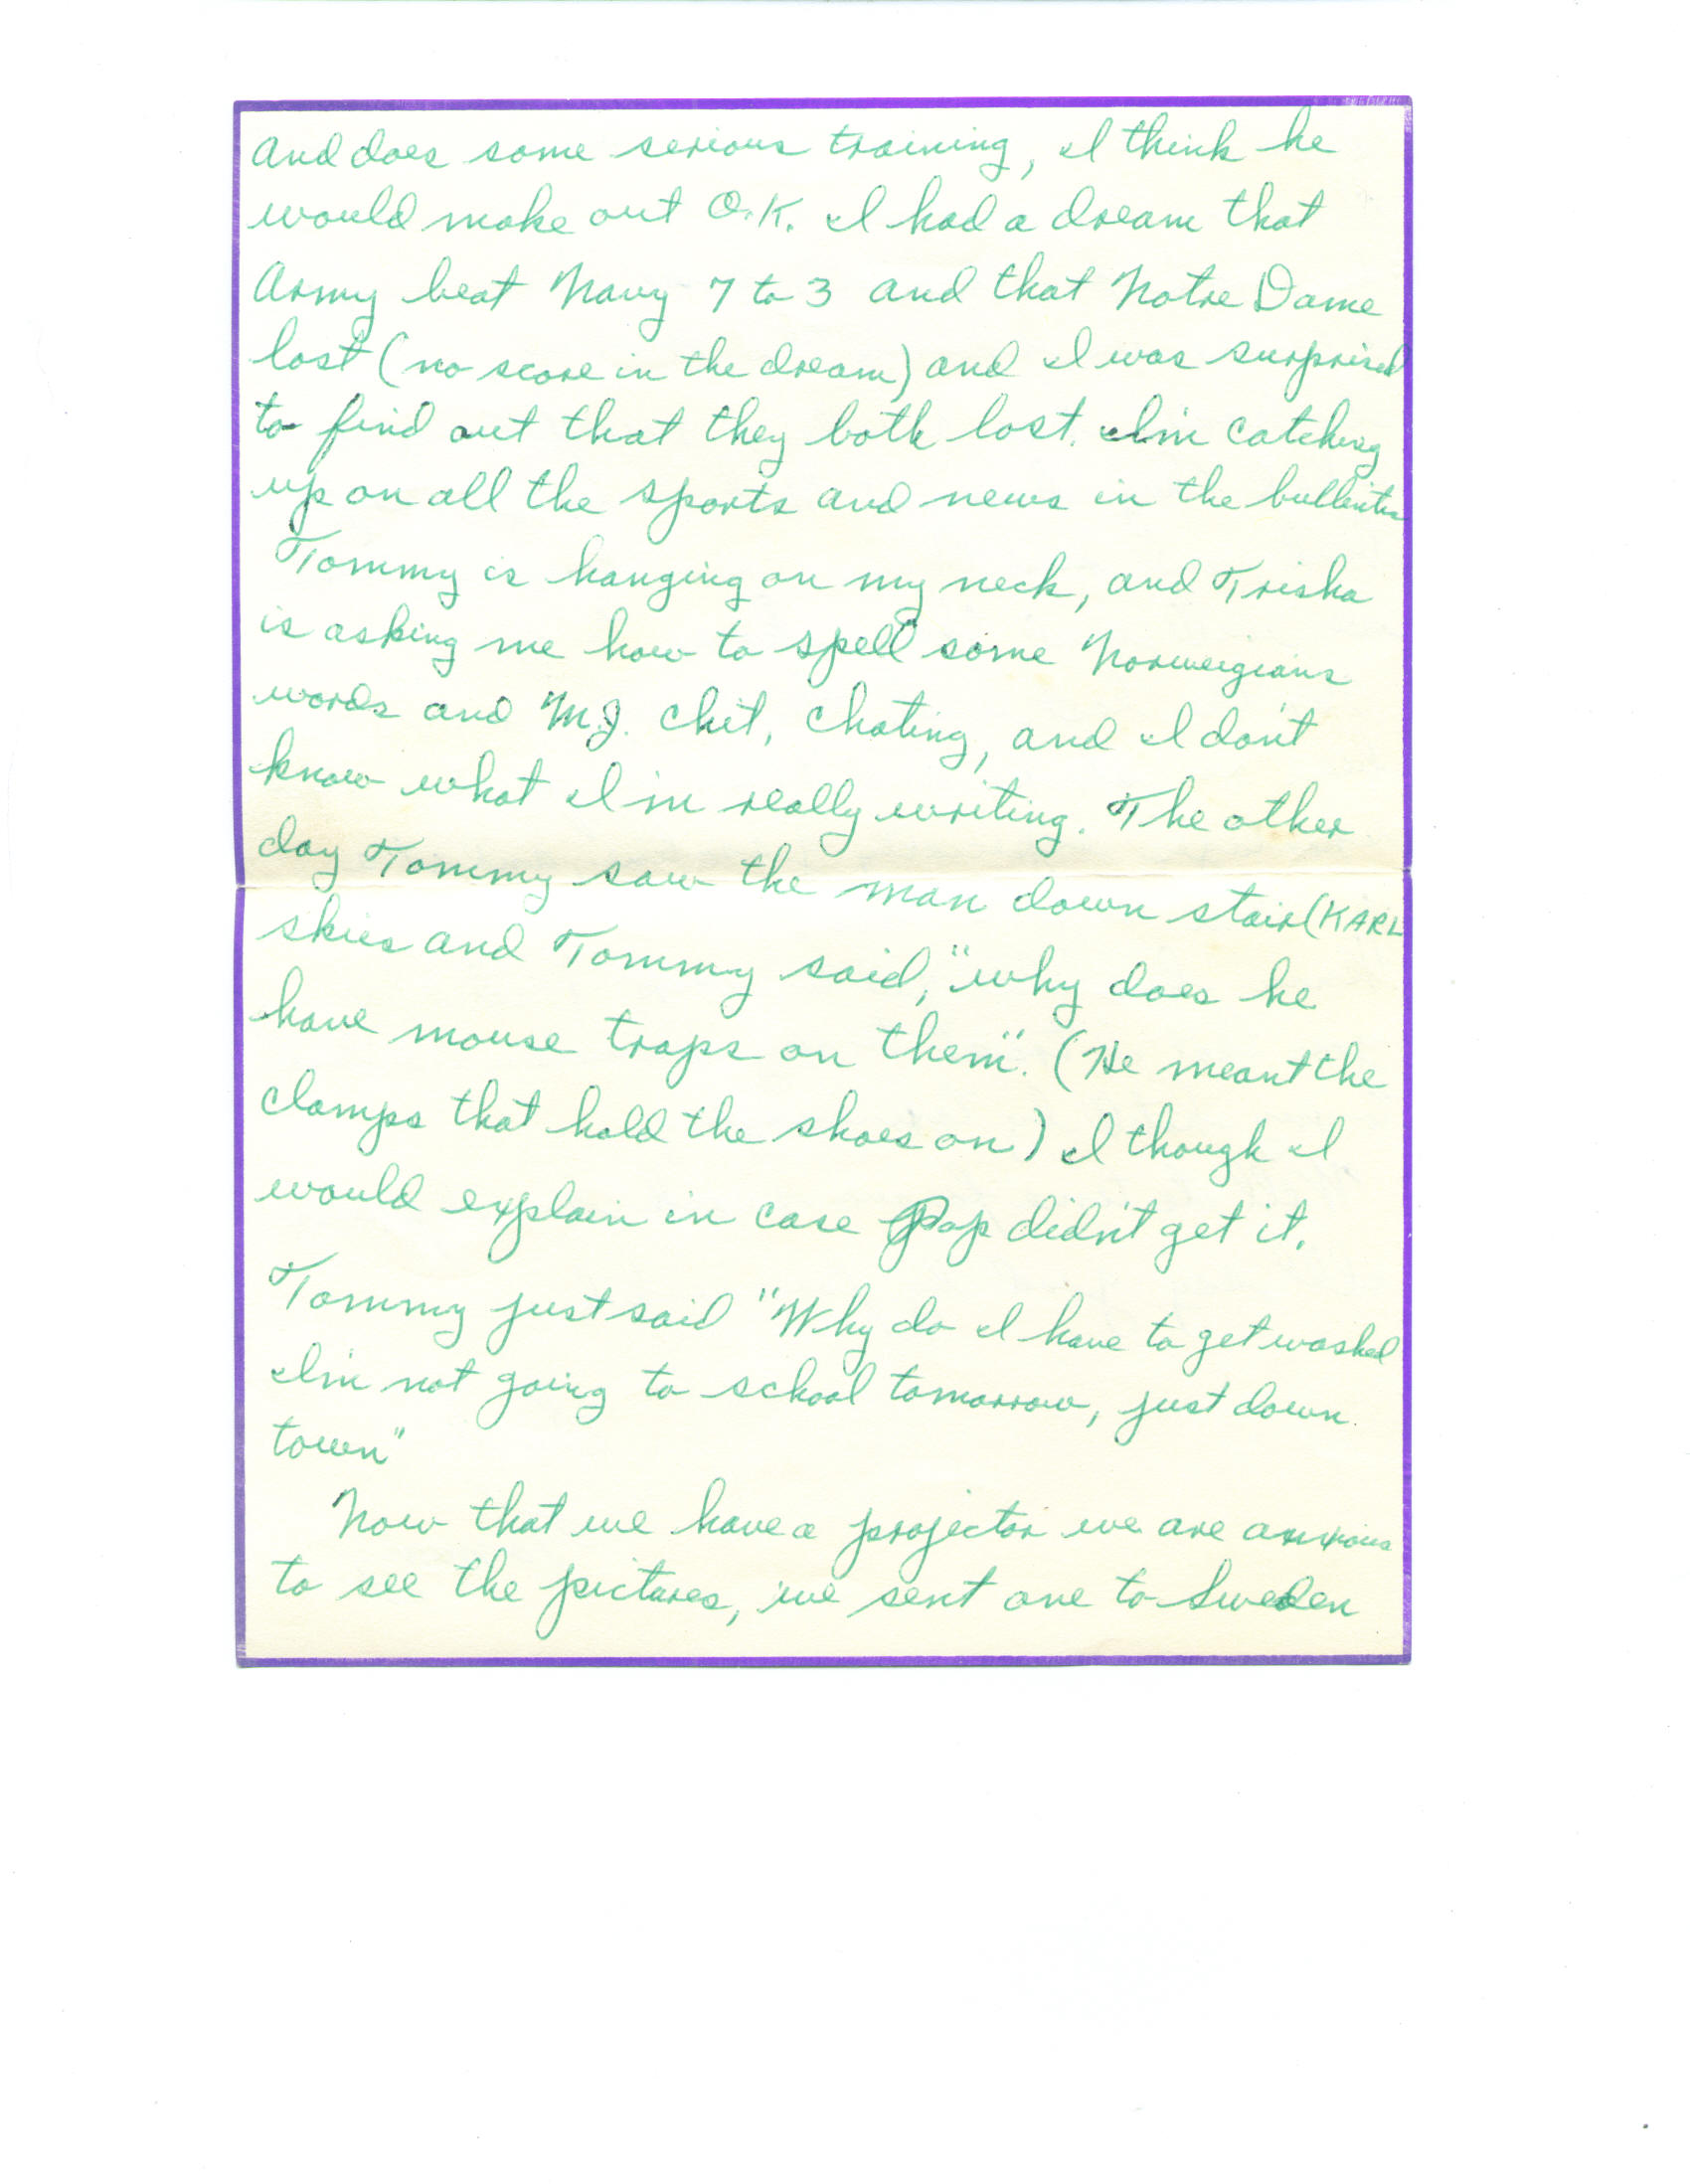 and does some serious training, I think he
would make out O.K. I had a dream that
Army beat Navy 7 to 3 and that Notre Dame
lost (no score in the dream) and I was surprised
to find out that they both lost. I'm catching
up on all the sports and news in the
Tommy is hanging on my neck, and Trisha
is asking me how to spell some Norweigians
words and M.J. chit, chating, and I don't
know what I'm really writing. The other
day Tommy saw the man down stair (KARL
skies and Tommy said, "why does he
have mouse traps on them". (He meant the
clamps that hold the shoes on) I though I
would explain in case Pop didn't get it.
Tommy just said "Why do I have to get washed
I'm not going to school tomorrow, just down
town"
Now that we have a projector we are anxious
to see the pictures, we sent one to Sweden